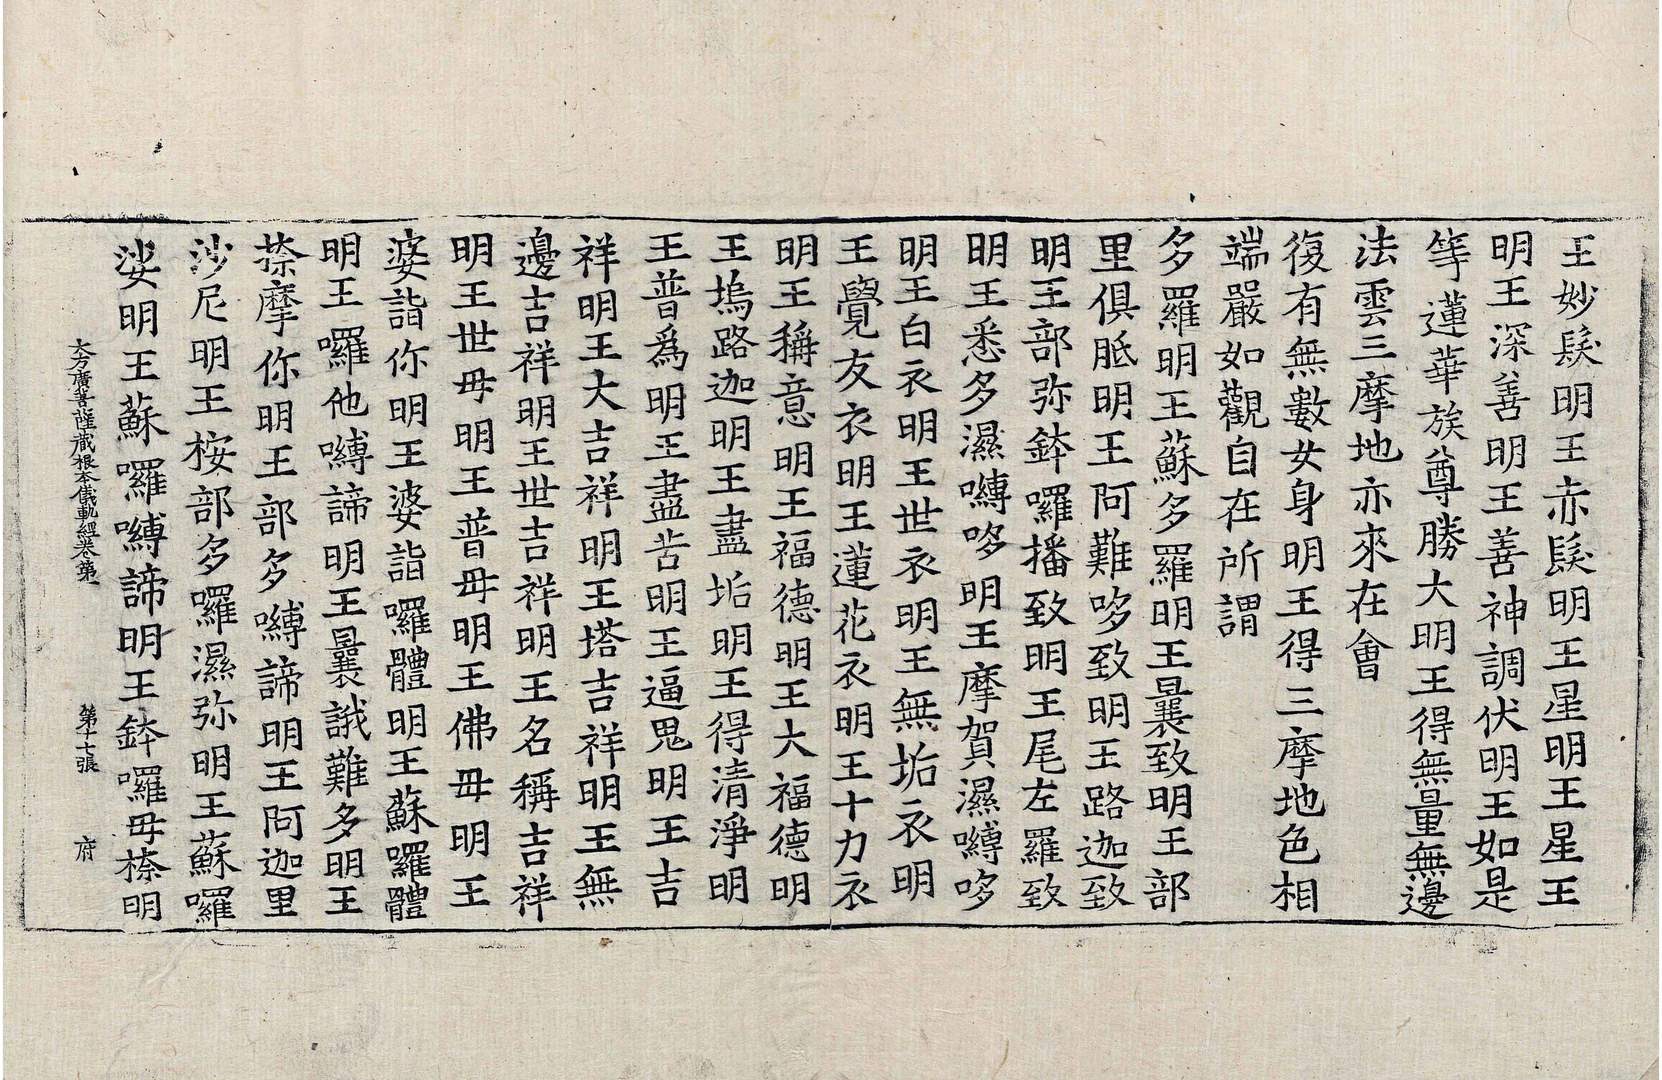 王妙髮明王赤髮明王星明王星王
明王深善明王善神調伏明王如是
等蓮華族尊勝大明王得無量無邊
法雲三摩地亦來在會
復有無數女身明王得三摩地色相
端嚴如觀自在所謂
多羅明王蘇多羅明王曩致明王部
里俱胝明王阿難哆致明王路迦致
明王部弥鉢囉播致明王尾左羅致
明王悉多濕嚩哆明王摩賀濕嚩哆
明王白衣明王世衣明王無垢衣明
王覺友衣明王蓮花衣明王十力衣
明王稱意明王福德明王大福德明
王塢路迦明王盡垢明王得清淨明
王普爲明王盡苦明王逼鬼明王吉
祥明王大吉祥明王塔吉祥明王無
邊吉祥明王世吉祥明王名稱吉祥
明王世毋明王普毋明王佛毋明王
婆詣你明王婆詣囉體明王蘇囉體
明王囉他嚩諦明王曩誐難多明王
捺摩你明王部多嚩諦明王阿迦里
沙尼明王桉部多囉濕弥明王蘇囉
娑明王蘇囉嚩諦明王鉢囉毋捺明
大方廣菩薩藏根本儀軌經卷第一 第十七張 府